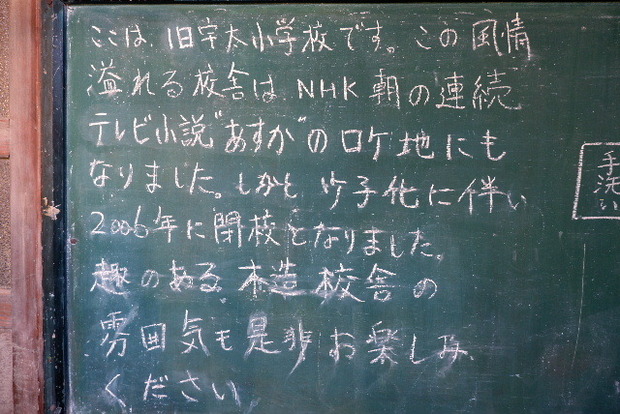 ここは、旧宇太小学校です。この風情
溢れる校舎は、NHK朝の連続
テレビ小説"あすか"のロケ地にも
なりました。しかし少子化に伴い
2006年に閉校となりました。
趣のある、木造校舎の
雰囲気も是非お楽しみ
ください
手洗い